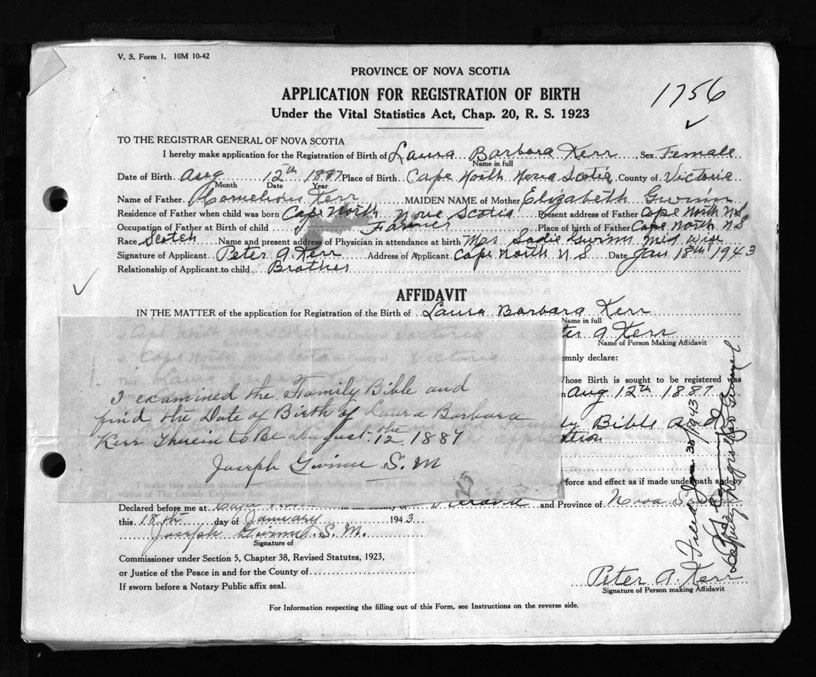 V. S. Form 1. 10M 10-42
PROVINCE OF NOVA SCOTIA
APPLICATION FOR REGISTRATION OF BIRTH
1756
Under the Vital Statistics Act, Chap. 20, R. S. 1923
TO THE REGISTRAR GENERAL OF NOVA SCOTIA
I hereby make application for the Registration of Birth of Laura Barbara Kerr, Sex Female
Name in full
Date of Birth Aug 12th 1887 Place of Birth Cape North Nova Scotia County of Victoria
Month Date Year
Name of Father Kerr MAIDEN NAME of Mother Elizabeth Gwinn
Residence of Father when child was born Cape North Nova Scotia Present address of Father Cape North N S
Occupation of Father at Birth of child Farmer Place of birth of Father Cape North N S
Race Scotch Name and present address of Physician in attendance at birth Mrs Sadie Gwinn Mid Wife
Signature of Applicant Peter A Kerr Address of Applicant Cape North N. S. Date Jan 18th 1943
Relationship of Applicant to child Brother
AFFIDAVIT
IN THE MATTER of the application for Registration of the Birth of Laura Barbara Kerr
Name in full
ter A Kerr
Name of Person Making Affidavit
emnly declare:
Whose Birth is sought to be registered was
n Aug 12th 1887
Bible and
I examined the Family Bible and
find the Date of Birth of Laura Barbara
Kerr Therein to Be August the 12 1887
Joseph Gwinn S. M
force and effect as if made under oath and by
virtue of The Canada
Declared before me at and Province of Nova
this 18th day of January 1943
Joseph Gwinn S. M.
Signature of
Commissioner under Section 5, Chapter 38, Revised Statutes, 1923,
or Justice of the Peace in and for the County of
If sworn before a Notary Public affix seal.
Peter A. Kerr
Signature of Person making Affidavit
For Information respecting the filling out of this Form, see Instructions on the reverse side.
Filed Jan 1943
Deputy Registrar General